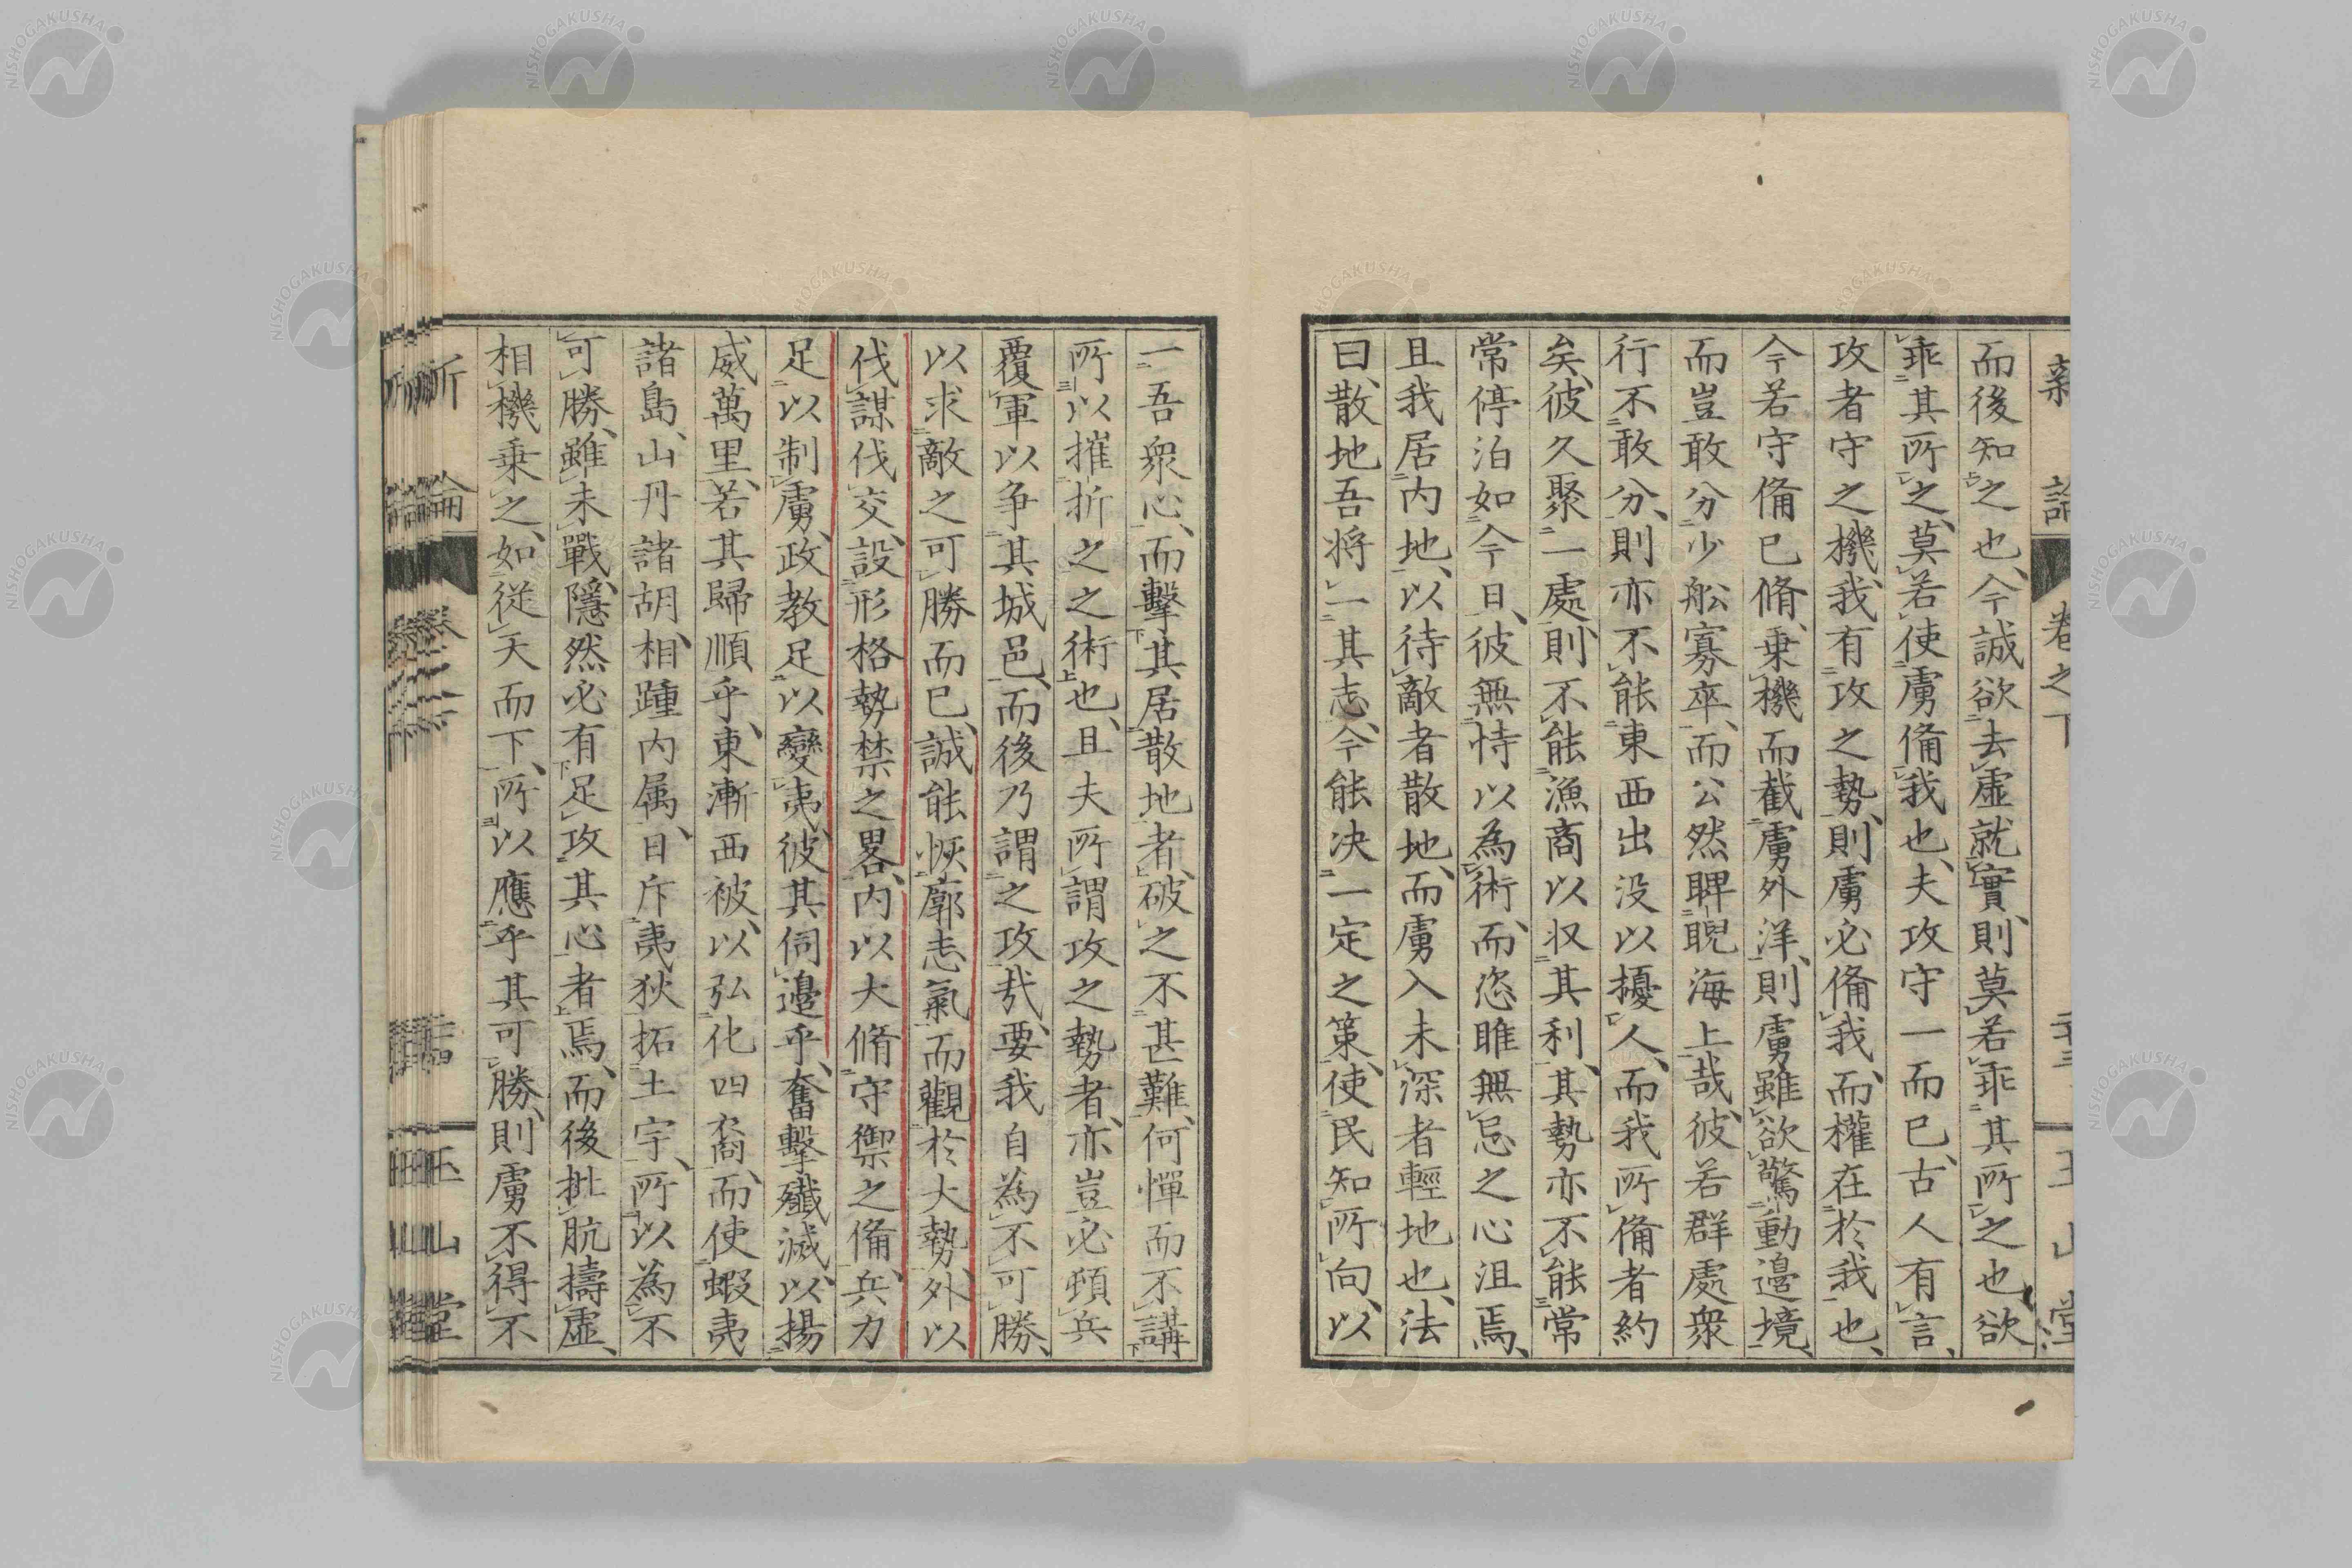 而後知之也、今誠欲去虛就實、則莫若乖其所之也、欲
乖其所之、莫若使虜備我也、夫攻守一而已、古人有言、
攻者守之機、我有攻之勢、則虜必備我、而權在於我也、
今若守備已脩、乗機而截虜外洋、則虜雖欲驚動邊境、
而豈敢分少舩寡卒、而公然睥睨海上哉、彼若群處衆
行不敢分、則亦不能東西出没以擾人、而我所備者約
矣、彼久聚一處、則不能漁商以収其利、其勢亦不能常
常停泊如今日、彼無恃以為術、而恣雎無忌之心沮焉、
且我居内地、以待敵者散地、而虜入未深者輕地也、法
曰、散地吾将一其志、今能决一定之策、使民知所向、以
一吾衆心、而擊其居散地者、破之不甚難、何憚而不講
所以摧折之之術也、且夫所謂攻之勢者、亦豈必頓兵
覆軍以争其城邑、而後乃謂之攻哉、要我自為不可勝、
以求敵之可勝而已、誠能恢廓志氣、而觀於大勢、外以
伐謀伐交、設形格勢禁之畧、内以大脩守禦之備、兵力
足以制虜、政教足以變夷、彼其伺邊乎、奮擊殲滅、以揚
威萬里、若其歸順乎、東漸西被、以弘化四裔、而使蝦夷
諸島、山丹諸胡、相踵内属、日斥夷狄、拓土宇、所以為不
可勝、雖未戰、隱然必有足攻其心者焉、而後批肮擣虛、
相機乗之、如従天而下、所以應乎其可勝、則虜不得不
新論
卷之下
玉山堂
NISHOGAKUSHA